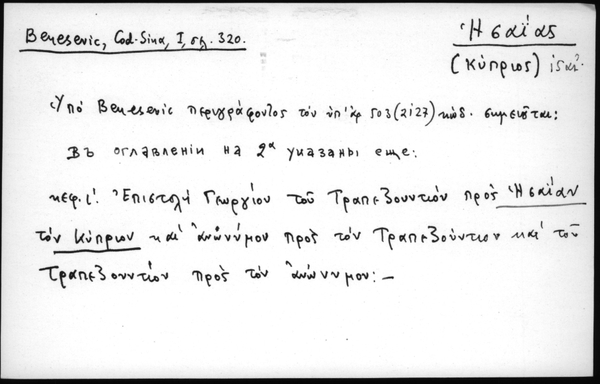 Benesevic, Cod. Sina, I, σελ. 320.
Ἡσαΐας
(Κύπριος)
Ὑπό Benesevic περιγράφοντος τόν ὑπ' ἀρ 503 (2127) κώδ. σημειοῦται:
Въ оглавленiи на 2α указаны еще:
κεφ. ι'. Ἐπιστολή Γεωργίου τοῦ Τραπεζουντίου πρός Ἡσαΐαν
τόν Κύπριον καί ἀνωνύμου πρός τόν Τραπεζούντιον καί τοῦ
Τραπεζουντίου πρός τόν ἀνώνυμον: –